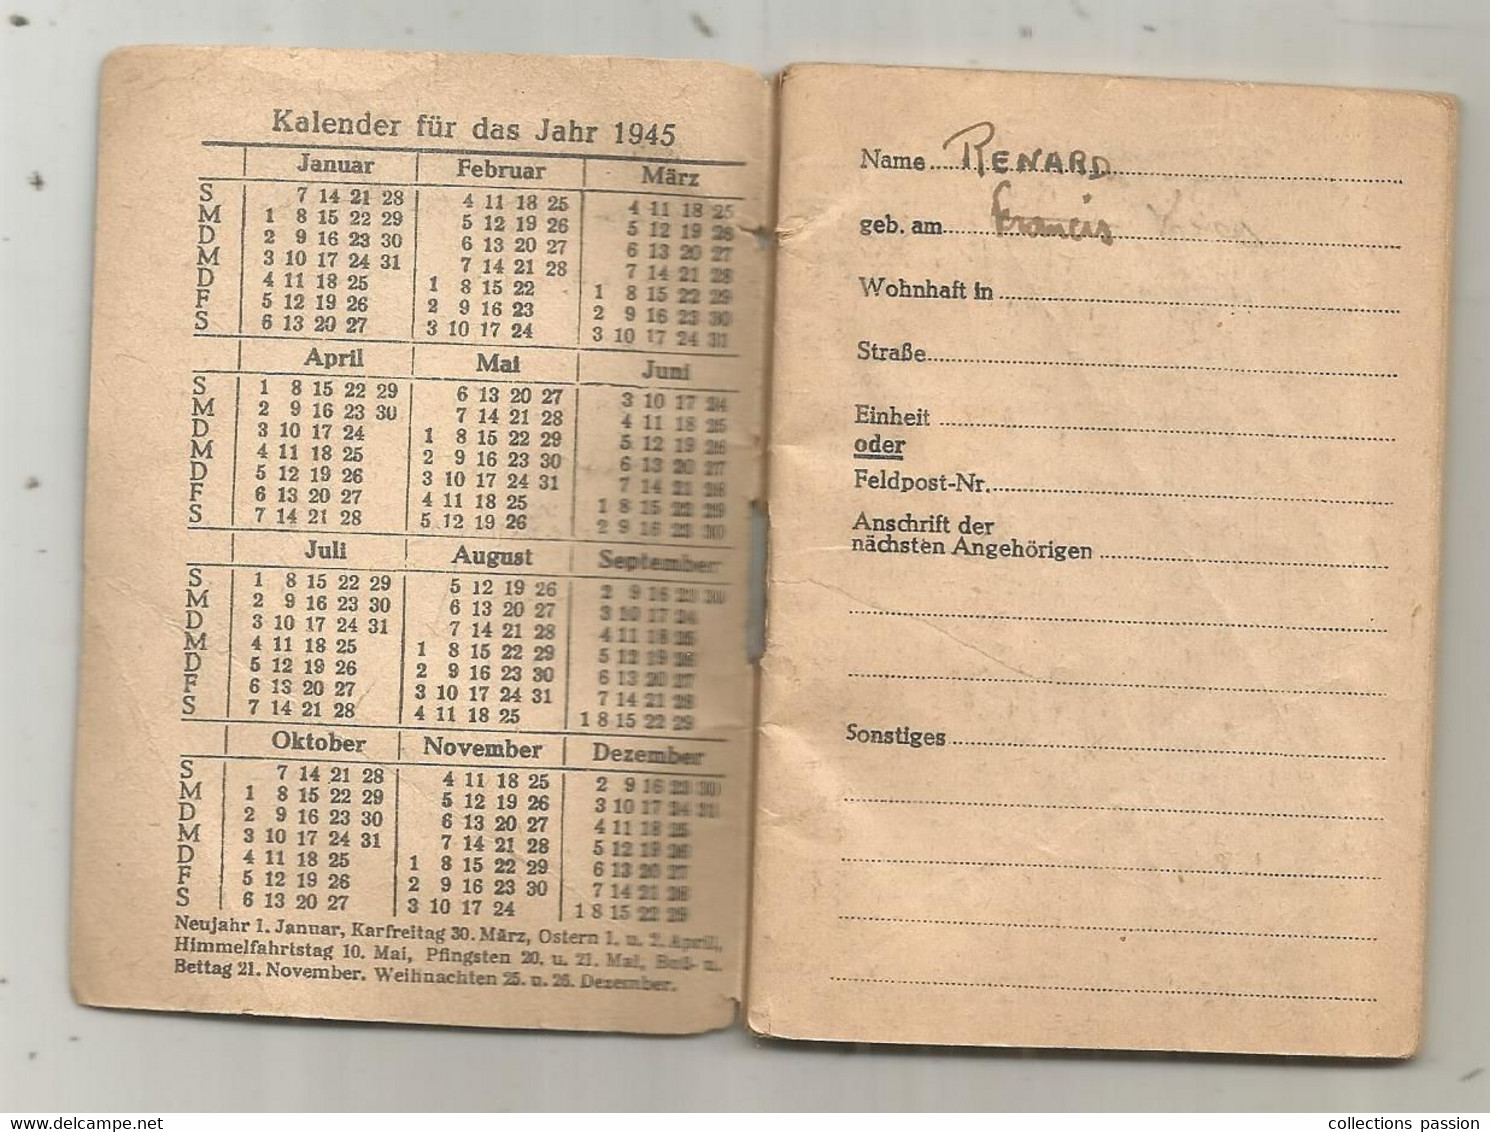 Kalender für das Jahr 1945
Januar Februar März
S 7 14 21 28 4 11 18 25 4 11 18 25
M 1 8 15 22 29 5 12 19 26 5 12 19 26
D 2 9 16 23 30 6 13 20 27 6 13 20 27
M 3 10 17 24 31 7 14 21 28 7 14 21 28
D 4 11 18 25 1 8 15 22 1 8 15 22 29
F 5 12 19 26 2 9 16 23 2 9 16 23 30
S 6 13 20 27 3 10 17 24 3 10 17 24 31
April Mai Juni
S 1 8 15 22 29 6 13 20 27 3 10 17 24
M 2 9 16 23 30 7 14 21 28 4 11 18 25
D 3 10 17 24 1 8 15 22 29 5 12 19 26
M 4 11 18 25 2 9 16 23 30 6 13 20 27
D 5 12 19 26 3 10 17 24 31 7 14 21 28
F 6 13 20 27 4 11 18 25 1 8 15 22 29
S 7 14 21 28 5 12 19 26 2 9 16 23 30
Juli August September
S 1 8 15 22 29 5 12 19 26 2 9 16 23 30
M 2 9 16 23 30 6 13 20 27 3 10 17 24
D 3 10 17 24 31 7 14 21 28 4 11 18 25
M 4 11 18 25 1 8 15 22 29 5 12 19 26
D 5 12 19 26 2 9 16 23 30 6 13 20 27
F 6 13 20 27 3 10 17 24 31 7 14 21 28
S 7 14 21 28 4 11 18 25 1 8 15 22 29
Oktober November Dezember
S 7 14 21 28 4 11 18 25 2 9 16 23 30
M 1 8 15 22 29 5 12 19 26 3 10 17 24 31
D 2 9 16 23 30 6 13 20 27 4 11 18 25
M 3 10 17 24 31 7 14 21 28 5 12 19 26
D 4 11 18 25 1 8 15 22 29 6 13 20 27
F 5 12 19 26 2 9 16 23 30 7 14 21 28
S 6 13 20 27 3 10 17 24 1 8 15 22 29
Neujahr 1. Januar, Karfreitag 30. März, Ostern 1. u. 2. April,
Himmelfahrtstag 10. Mai, Pfingsten 20. u. 21. Mai, Buß- u.
Bettag 21. November. Weihnachten 25. u. 26. Dezember.
Name RENARD
geb. am Francis
Wohnhaft in
Straße
Einheit
oder
Feldpost-Nr.
Anschrift der
nächsten Angehörigen
Sonstiges
collections passion